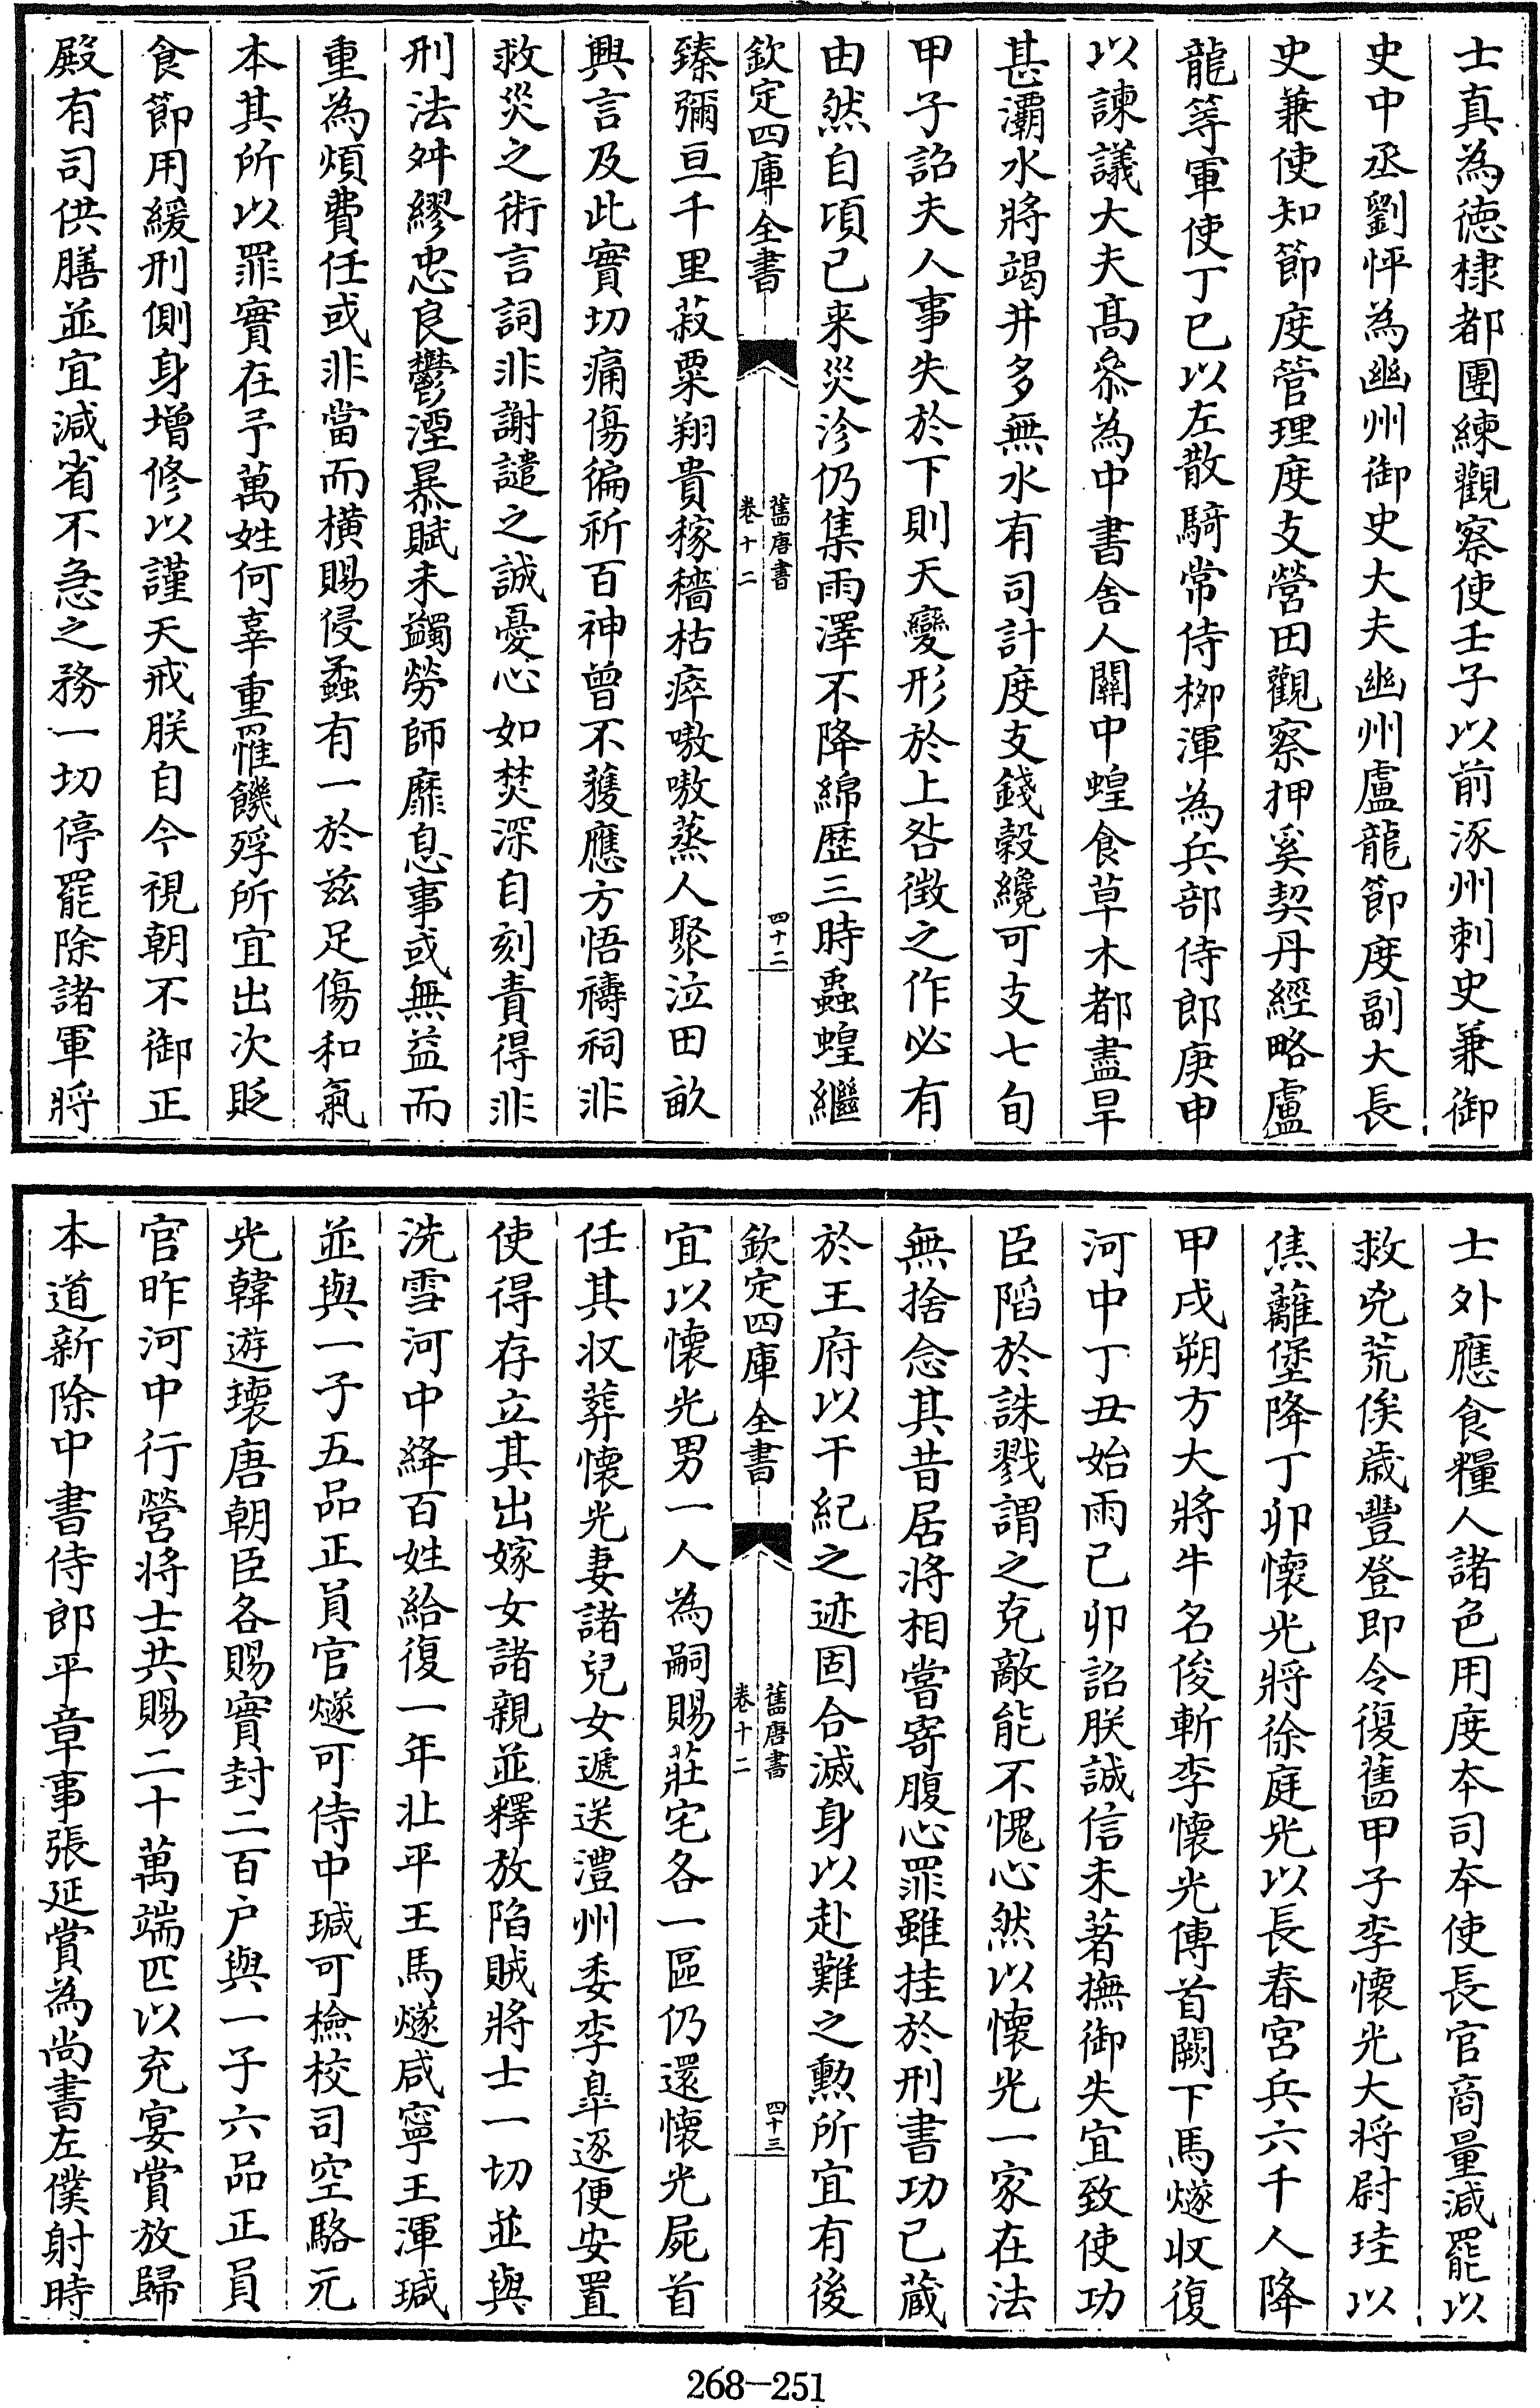 士真為徳棣都團練觀察使壬子以前涿州刺史兼御
史中丞劉怦為幽州御史大夫幽州盧龍節度副大長
史兼使知節度管理度支營田觀察押奚契丹經略盧
龍等軍使丁巳以左散騎常侍栁渾為兵部侍郎庚申
以諫議大夫髙叅為中書舍人關中蝗食草木都盡旱
甚灞水將竭井多無水有司計度支錢榖纔可支七旬
甲子詔夫人事失於下則天變形於上咎徴之作必有
由然自項已来災沴仍集雨澤不降綿歴三時蟲蝗繼
欽定四庫全書
舊唐書
卷十二
四十二
臻彌亘千里菽粟翔貴稼穡枯瘁嗷嗷蒸人聚泣田畝
興言及此實切痛傷徧祈百神曾不獲應方悟禱祠非
救災之術言詞非謝譴之誠憂心如焚深自刻責得非
刑法舛繆忠良鬱湮暴賦未蠲勞師靡息事或無益而
重為煩費任或非當而横賜侵蟊有一於兹足傷和氣
本其所以罪實在予萬姓何辜重罹饑殍所宜出次貶
食節用緩刑側身增修以謹天戒朕自今視朝不御正
殿有司供膳並宜減省不急之務一切停罷除諸軍將
士外應食糧人諸色用度夲司夲使長官商量減罷以
救兇荒俟歳豐登即令復舊甲子李懷光大將尉珪以
焦蘺堡降丁卯懷光將徐庭光以長春宮兵六千人降
甲戌朔方大將牛名俊斬李懷光傳首闕下馬燧收復
河中丁丑始雨己卯詔朕誠信未著撫御失宜致使功
臣陷於誅戮謂之克敵能不愧心然以懷光一家在法
無捨念其昔居將相嘗寄腹心罪雖挂於刑書功已蔵
於王府以干紀之迹固合滅身以赴難之勲所宜有後
欽定四庫全書
舊唐書
卷十二
四十三
宜以懷光男一人為嗣賜莊宅各一區仍還懷光屍首
任其収葬懷光妻諸兒女遞送澧州委李臯逐便安置
使得存立其出嫁女諸親並釋放陷賊將士一切並與
洗雪河中絳百姓給復一年壯平王馬燧咸寧王渾瑊
並與一子五品正員官燧可侍中瑊可檢校司空駱元
光韓遊瓌唐朝臣各賜實封二百户與一子六品正員
官昨河中行營将士共賜二十萬端匹以充宴賞放歸
本道新除中書侍郎平章事張延賞為尚書左僕射時
268—251